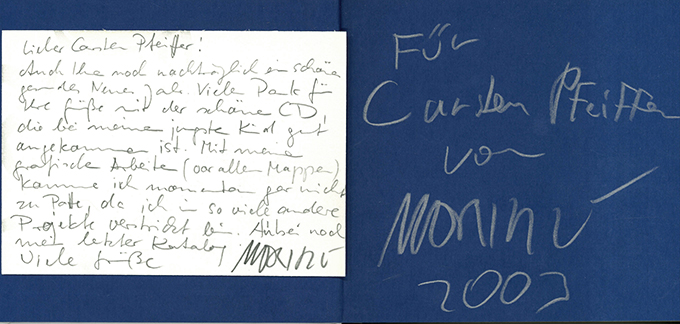 Lieber Carsten Pfeiffer!
Auch Ihnen noch nachträglich ein schönes
Neues Jahr. Vielen Dank für
Ihre Grüße mit der schönen CD,
die bei meinem jüngsten Kind gut
angekommen ist. Mit meinen
grafischen Arbeiten (vor allem Mappen)
komme ich momentan gar nicht
zu Potte, da ich in so viele andere
Projekte verstrickt bin. Anbei noch
mein letzter Katalog
Viele Grüße
Für
Carsten Pfeiffer
von
2003